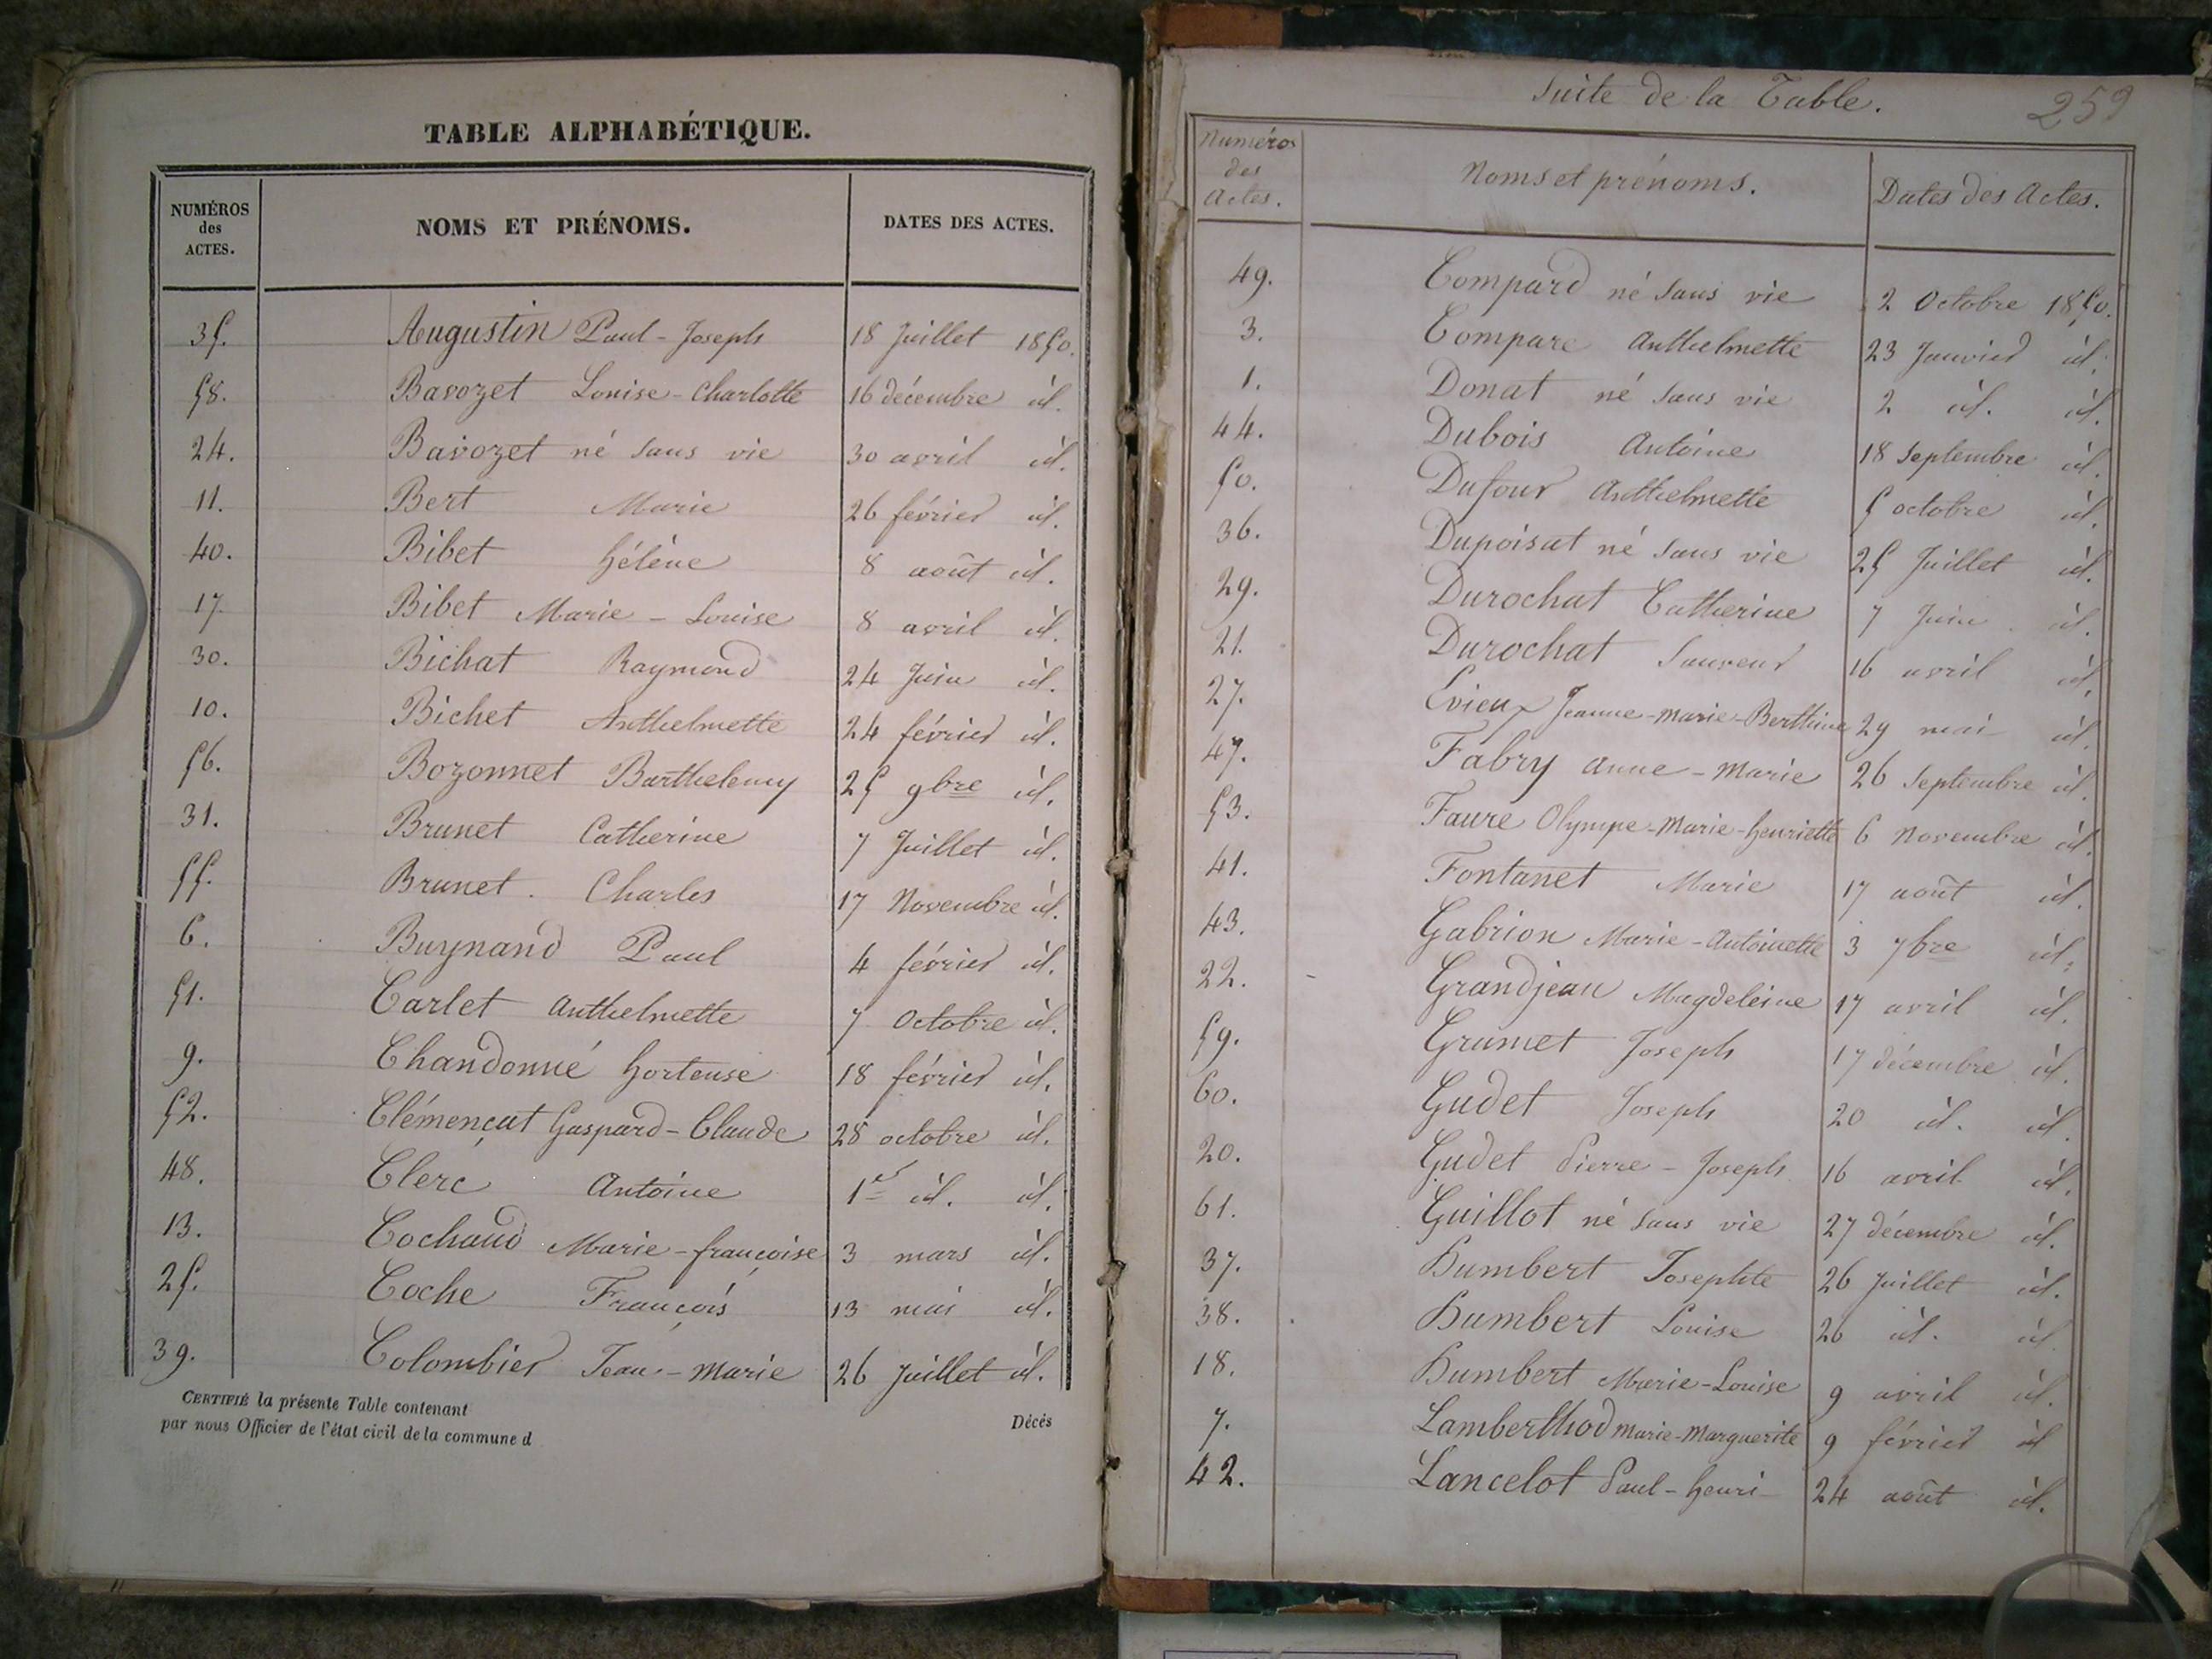 TABLE ALPHABÉTIQUE.
NUMÉROS
des
ACTES.
NOMS ET PRÉNOMS.
DATES DES ACTES.
35. Augustin Paul-Joseph 18 Juillet 1850.
58. Bavozet Louise-Charlotte 16 décembre id.
24. Bavozet né sans vie 30 avril id.
11. Bert Marie 26 février id.
40. Bibet hélène 8 août id.
17. Bibet Marie-Louise 8 avril id.
30. Bichat Raymond 24 Juin id.
10. Bichet Anthelmette 24 février id.
56. Bozonnet Barthelemy 25 9bre id.
31. Brunet Catherine 7 Juillet id.
55. Brunet. Charles 17 Novembre id.
6. Buynand Paul 4 février id.
51. Carlet anthelmette 7 Octobre id.
9. Chandonné hortense 18 février id.
52. Clémençat Gaspard-Claude 28 octobre id.
48. Clerc Antoine 1er id. id.
13. Cochaud Marie-françoise 3 mars id.
25. Coche François 13 mai id.
39. Colombier Jean-Marie 26 Juillet id.
CERTIFIÉ la présente Table contenant
Décès
par nous Officier de l'état civil de la commune d
Suite de la Table.
259
Numéros
des
Actes.
Noms et prénoms.
Dates des Actes.
49. Compard né sans vie 2 Octobre 1850.
3. Compare Anthelmette 23 Janvier id.
1. Donat né sans vie 2 id. id.
44. Dubois Antoine 18 Septembre id.
50. Dufour Anthelmette 5 octobre id.
36. Dupoisat né sans vie 25 Juillet id.
29. Durochat Catherine 7 Juin id.
21. Durochat Sauveur 16 avril id.
27. Evieux Jeanne-marie-Berthine 29 mai id.
47. Fabry anne-Marie 26 Septembre id.
53. Faure Olympe-Marie-henriette 6 Novembre id.
41. Fontanet Marie 17 août id.
43. Gabrion Marie-Antoinette 3 7bre id.
22. Grandjean Magdeleine 17 avril id.
59. Grumet Joseph 17 décembre id.
60. Gudet Joseph 20 id. id.
20. Gudet Pierre-Joseph 16 avril id.
61. Guillot né sans vie 27 décembre id.
37. Humbert Josephte 26 Juillet id.
38. Humbert Louise 26 id. id.
18. Humbert Marie-Louise 9 avril id.
7. Lamberthod Marie-Marguerite 9 février id
42. Lancelot Paul-henri 24 août id.